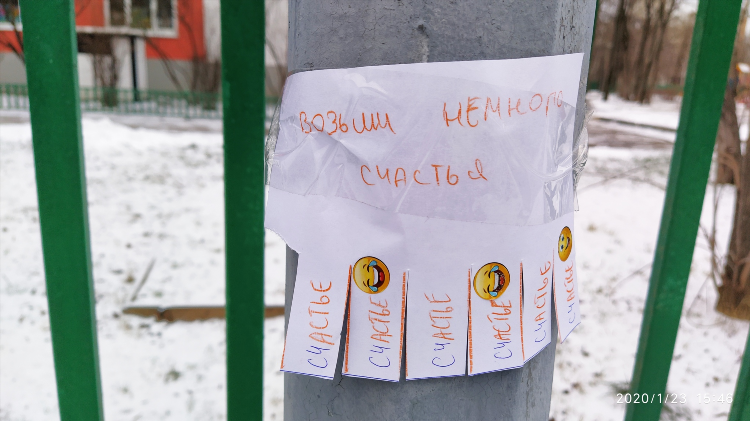 возьми немного
счастья
счастье
счастье
счастье
счастье
счастье
счастье
2020/1/23 15:46